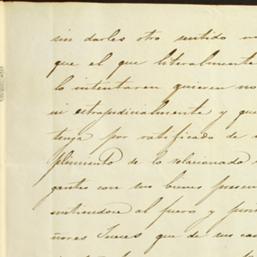 sin darles otro sentido
que el que literalmente
lo intentaren quieren no
ni extrajudicialmente y que
tenga por ratificado de
plimiento de lo relacionado
gentes con sus bienes presen
metiendose al fuero y
ñores Jueces que de sus cau